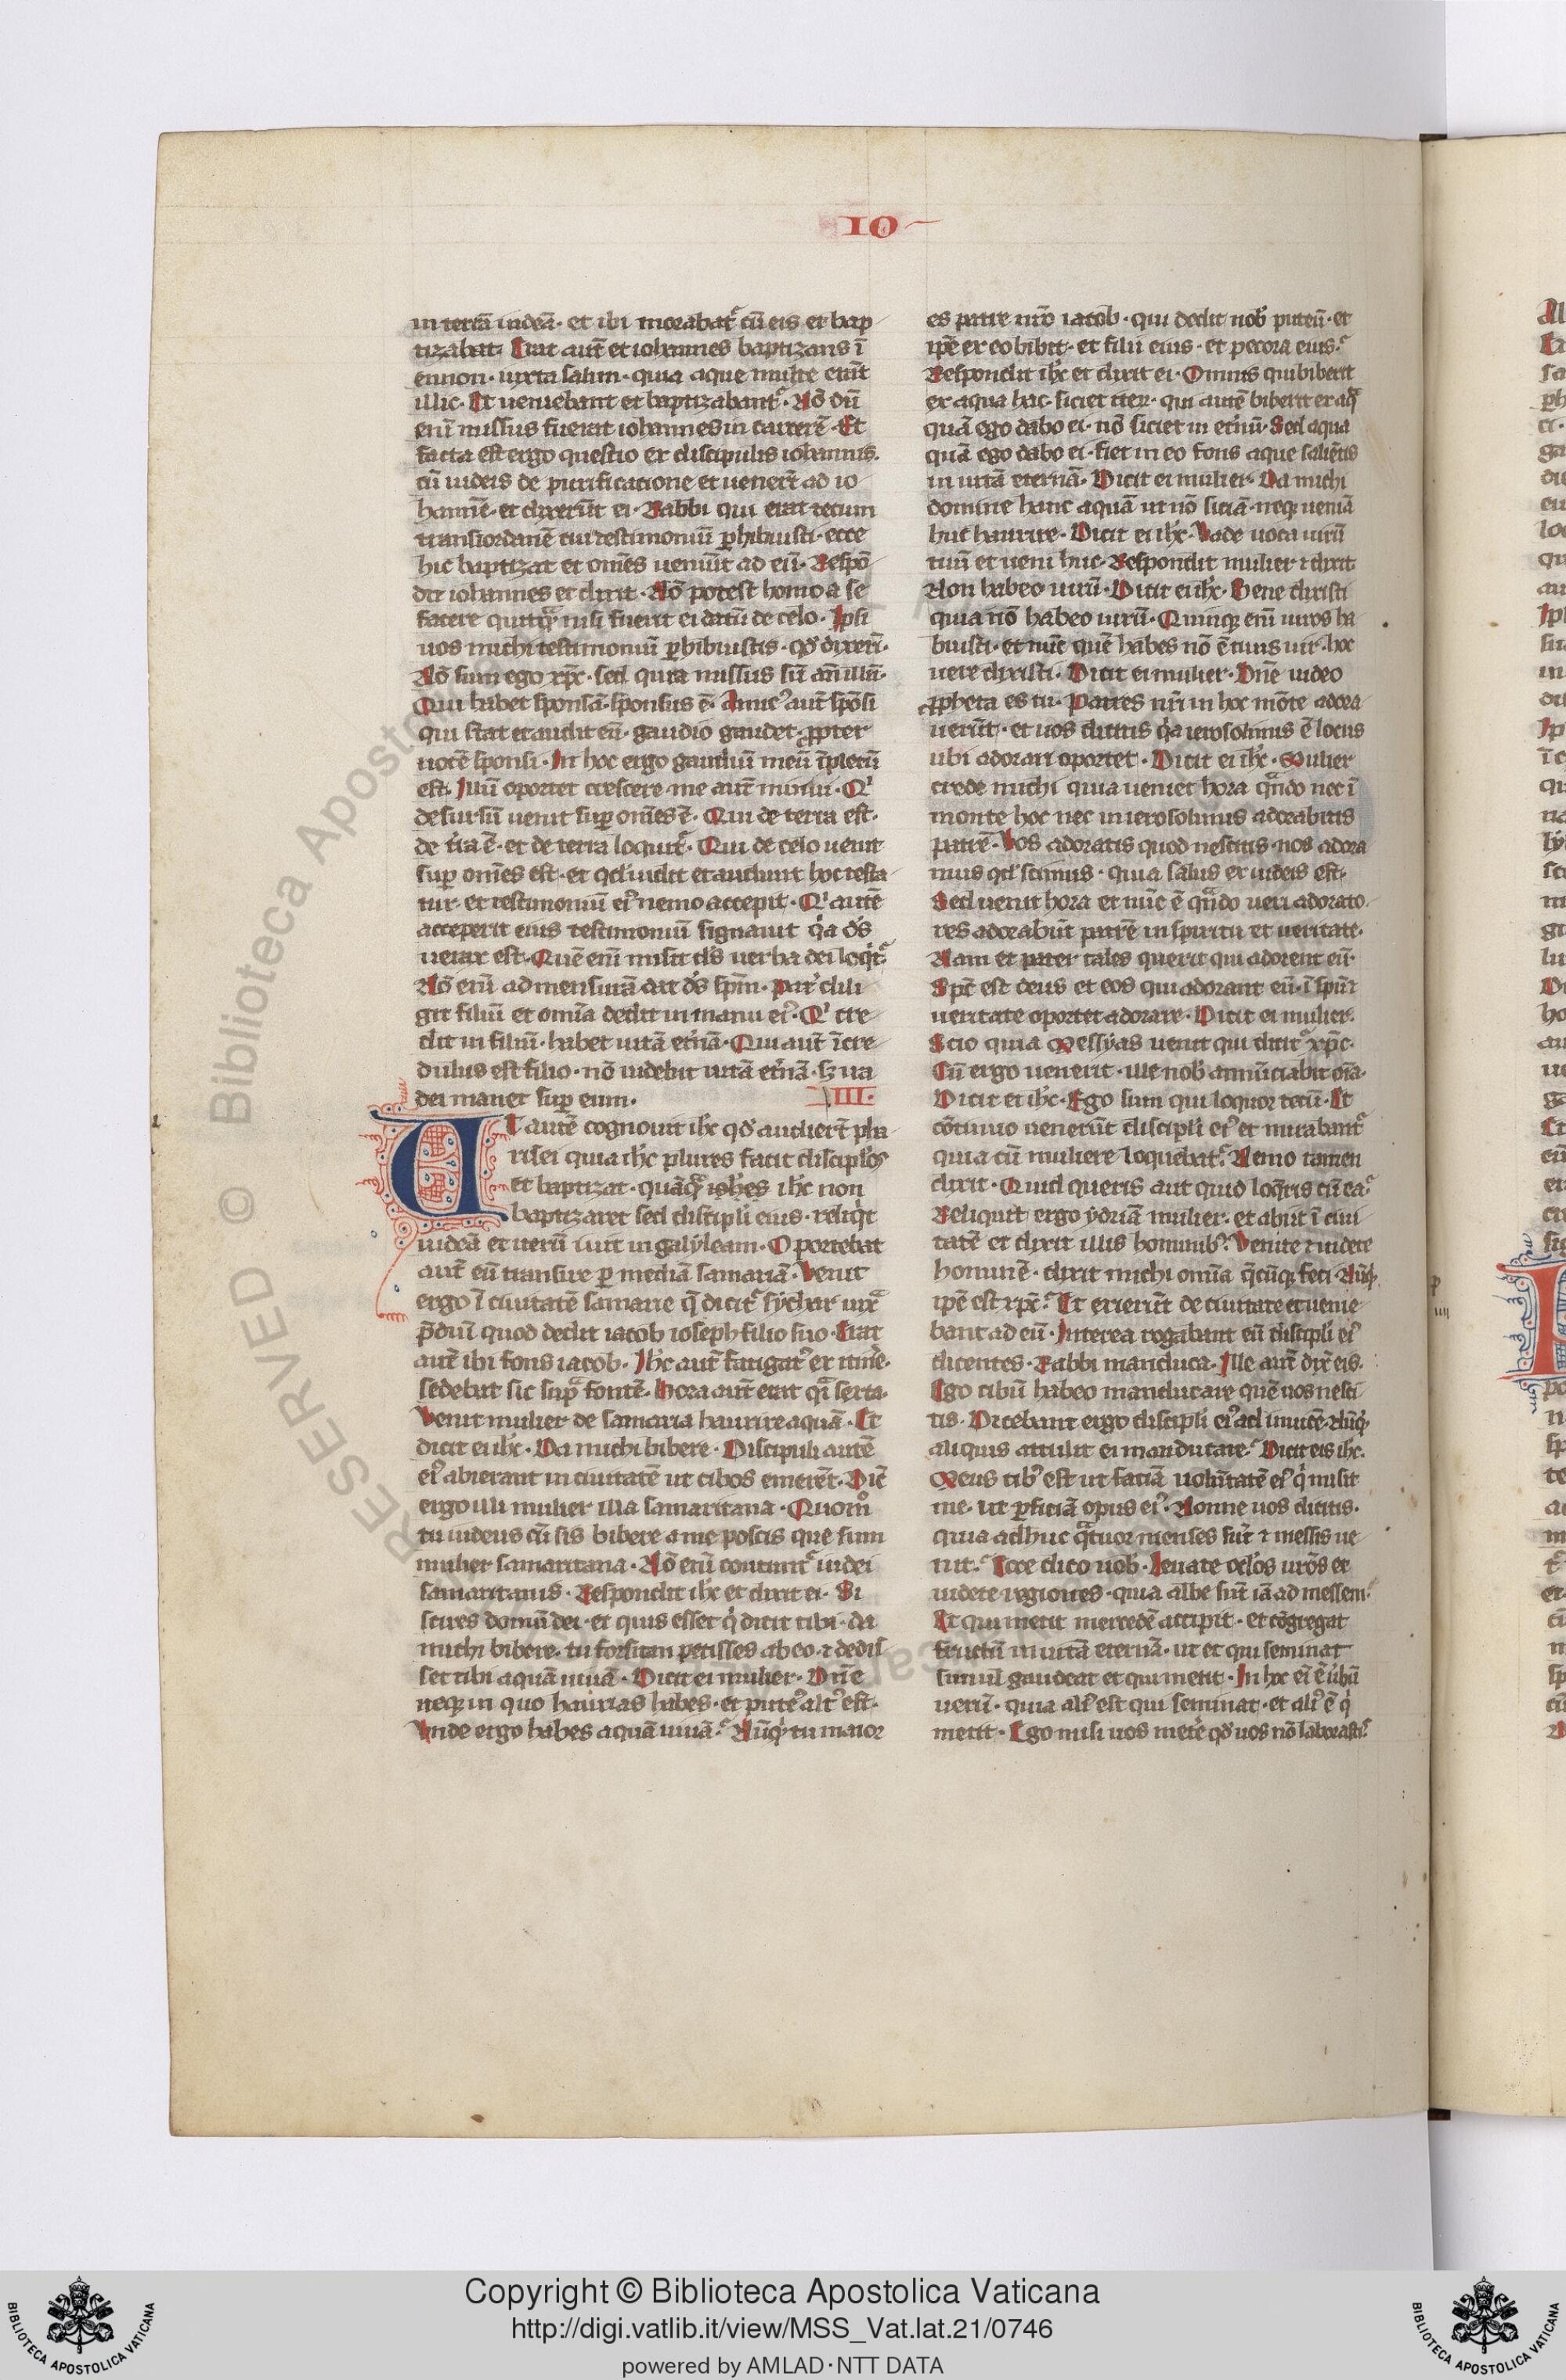 IO
in terrā iudeā· et ibi morabat᷑ cū eis et bap
tizabat· Erat aut̄ et iohannes baptizans ī
ennon· iuxta salim· quia aque multe erāt
illic· Et ueniebant et baptizabant᷑· Nō dū
enī missus fuerat iohannes in carcerē· Et
facta est ergo questio ex discipulis iohannis·
cū iudeis de purificatione et uenerūt ad io
hannē· et dixerūt ei· Rabbi qui erat tecum
transiordanē cui testimoniū ꝑhibuisti· ecce
hic baptizat et omēs ueniūt ad eū· Respō
dit iohannes et dixit· Nō potest homo a se
facere quicq̄ nisi fuerit ei datū de celo· Ipsi
uos michi testimoniū ꝑhibuistis· qd̄ dixerī·
Nō sum ego xp̄c· sed quia missus sū an̄ illū·
Qui habet sponsā· sponsus ē· Amic᷒ aut̄ spōsi
qui stat et audit eū· gaudio gaudet ꝓpter
uocē sponsi· In hoc ergo gaudiū meū īpletū
est· Illū oportet crescere me aut̄ minui· Qͥ
desursū uenit suꝑ om̄es ē· Qui de terra est·
de t̄ra ē· et de terra loquit᷑· Qui de celo uenit
suꝑ om̄es est· et qd̄ uidit et audiuit hoc testa
tur· et testimoniū ei᷒ nemo accepit· Qͥ autē
acceperit eius testimoniū signauit qͥa ds̄
uerax est· Quē enī misit ds̄ uerba dei loqͥt᷑·
Nō enī ad mensurā dat ds̄ spm̄· Pat̄ dili
git filiū et om̄ia dedit in manu ei᷒· Qͥ cre
dit in filiū· habet uitā et̄nā· Qui aut̄ īcre
dulus est filio· nō uidebit uitā et̄nā· sꝫ ira
dei manet suꝑ eum· IIII·
UT autē cognouit ih̄c qd̄ audierūt pha
risei quia ih̄c plures facit disciplōs
et baptizat· quāq̄ ioh̄es ih̄c non
baptizaret sed discipli eius· reliqͥt
iudeā et iterū iuit in galyleam· Oportebat
aut̄ eū transire ꝑ mediā samariā· Venit
ergo ī ciuitatē samarie q̄ dicit᷑ sychar iuxᵃ
p̄diū quod dedit iacob ioseph filio suo· Erat
aut̄ ibi fons iacob· Ih̄c aut̄ fatigat᷒ ex itin̄e·
sedebat sic supᵃ fontē· Hora aut̄ erat qͣi sexta·
Venit mulier de samaria haurire aquā· Et
dicit ei ih̄c· Da michi bibere· Discipuli autē
ei᷒ abierant in ciuitatē ut cibos emerēt· Dīc
ergo illi mulier illa samaritana· Quom̊
tu iudeus cū sis bibere a me poscis que sum
mulier samaritana· Nō enī coutunt᷑ iudei
samaritanis· Respondit ih̄c et dixit ei· Si
scires donū dei· et quis esset qͥ dicit tibi· da
michi bibere· tu forsitan petisses ab eo· ⁊ dedis
set tibi aquā uiuā· Dicit ei mulier· Dn̄e
neqꝫ in quo haurias habes· et pute᷒ alt᷒ est·
Vnde ergo habes aquā uiuā· Nūqͥd tu maior
es patre nr̄o iacob· qui dedit nob̄ puteū· et
ipē ex eo bibit· et filii eius· et pecora eius·
Respondit ih̄c et dixit ei· Omnis qui biberit
ex aqua hac· siciet iter· qui autē biberit ex aqͣ
quā ego dabo ei· nō siciet in et̄nū· Sed aqua
quā ego dabo ei· fiet in eo fons aque saliētis
in uitā eternā· Dicit ei mulier· Da michi
domine hanc aquā ut nō siciā· neqꝫ ueniā
huc haurire· Dicit ei ih̄c· Vade uoca uirū
tuū et ueni huc· Respondit mulier ⁊ dixit
Non habeo uirū· Dicit ei ih̄c· Bene dixisti
quia nō habeo uirū· Quinqꝫ enī uiros ha
buisti· et nūc quē habes nō ē tuus uir· hoc
uere dixisti· Dicit ei mulier· Dn̄e uideo
ꝓpheta es tu· Patres nr̄i in hoc mōte adora
uerūt· et uos dicitis qͥa ierosolimis ē locus
ubi adorari oportet· Dicit ei ih̄c· Mulier
crede michi quia ueniet hora qͣndo nec ī
monte hoc nec in ierosolimis adorabitis
patrē· Vos adoratis quod nescitis· nos adora
mus qd̄ scimus· quia salus ex iudeis est·
Sed uenit hora et nūc ē qͣndo ueri adorato
res adorabūt patrē in spiritu et ueritate·
Nam et pater tales querit qui adorent eū·
Spc̄ est deus et eos qui adorant eū· ī spū ⁊
ueritate oportet adorare· Dicit ei mulier·
Scio quia Messyas uenit qui dicit᷑ xp̄c·
Cū ergo uenerit· ille nob̄ annūciabit oīa·
Dicit ei ih̄c· Ego sum qui loquor tecū· Et
cōtinuo uenerūt discipli ei᷒ et mirabant᷑
quia cū muliere loquebat᷑· Nemo tamen
dixit· Quid queris aut quid loqͥris cū ea·
Reliquit ergo ydriā mulier· et abiit ī ciui
tatē et dixit illis hominib᷒· Venite ⁊ uidete
hominē· dixit michi omīa q̄cūqꝫ feci· Nūqͥd
ipē est xpc̄· Et exierūt de ciuitate et uenie
bant ad eū· Interea rogabant eū discipli ei᷒
dicentes· Rabbi manduca· Ille aut̄ dix̄ eis·
Ego cibū habeo manducare quē uos nesci
tis· Dicebant ergo discipli ei᷒ ad inuicē· Nūqͥd
aliquis attulit ei manducare· Dicit eis ih̄c·
Meus cib᷒ est ut faciā uolūtatē ei᷒ qͥ misit
me· ut ꝑficiā opus ei᷒· Nonne uos dicitis·
quia adhuc qͣtuor menses sūt ⁊ messis ue
nit· Ecce dico uob̄· Leuate oclōs ur̄os et
uidete regiones· quia albe sūt iā ad messem·
Et qui metit mercedē accipit· et cōgregat
fructū in uitā eternā· ut et qui seminat
simul gaudeat et qui metit· In hoc eī ē ūbū
uerū· quia ali᷒ est qui seminat· et ali᷒ ē qͥ
metit· Ego misi uos metē qd̄ uos nō laborasti᷒
Copyright © Biblioteca Apostolica Vaticana
http://digi.vatlib.it/view/MSS_Vat.lat.21/0746
powered by AMLAD·NTT DATA